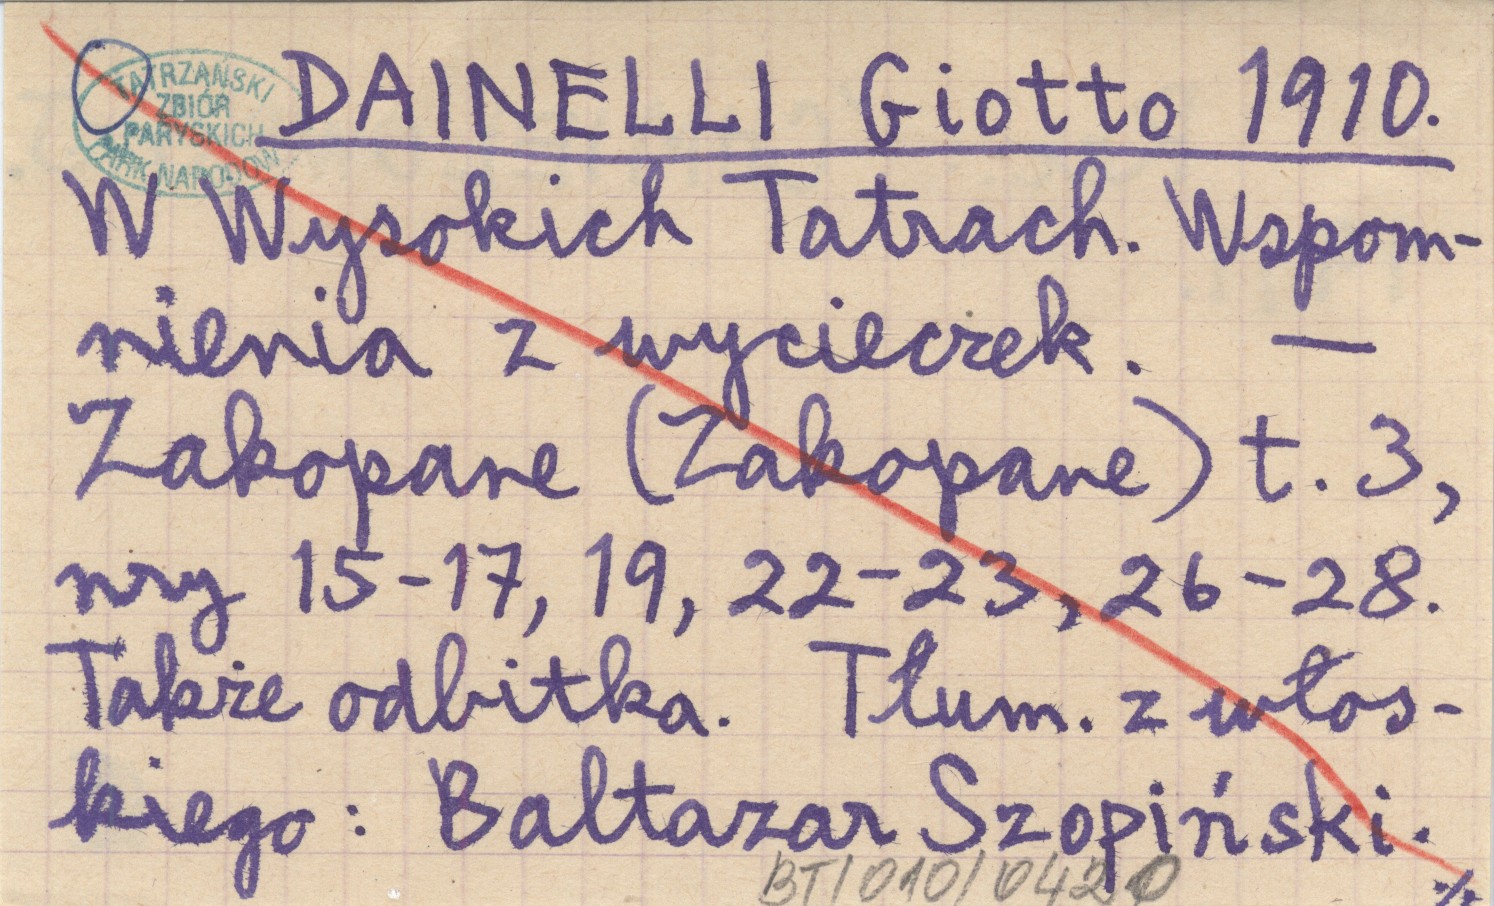 TATRZAŃSKI
ZBIÓR
PARYSKICH
PARK NARODOW
DAINELLI Giotto 1910.
W Wysokich Tatrach. Wspom-
nienia z wycieczek. —
Zakopane (Zakopane) t. 3,
nry 15-17, 19, 22-23, 26-28.
Także odbitka. Tłum. z włos-
kiego: Baltazar Szopiński.
BT/010/0420